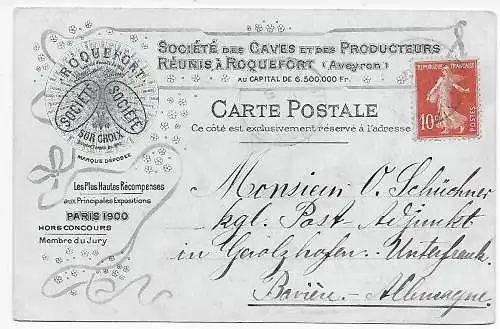 ROQUEFORT
SOCIÉTÉ
SOCIÉTÉ
SUR CHOIX
MARQUE DÉPOSÉE
Les Plus Hautes Récompenses
aux Principales Expositions
PARIS 1900
HORS CONCOURS
Membre du Jury
SOCIÉTÉ DES CAVES ET DES PRODUCTEURS
RÉUNIS À ROQUEFORT (Aveyron)
AU CAPITAL DE 6.500.000 Fr.
CARTE POSTALE
Ce côté est exclusivement réservé à l'adresse
REPUBLIQUE FRANÇAISE
10
POSTES
Monsieur O. Schüchner
kgl. Post Adjunkt
in Gerolzhofen - Unterfrank.
Bavière - Allemagne.